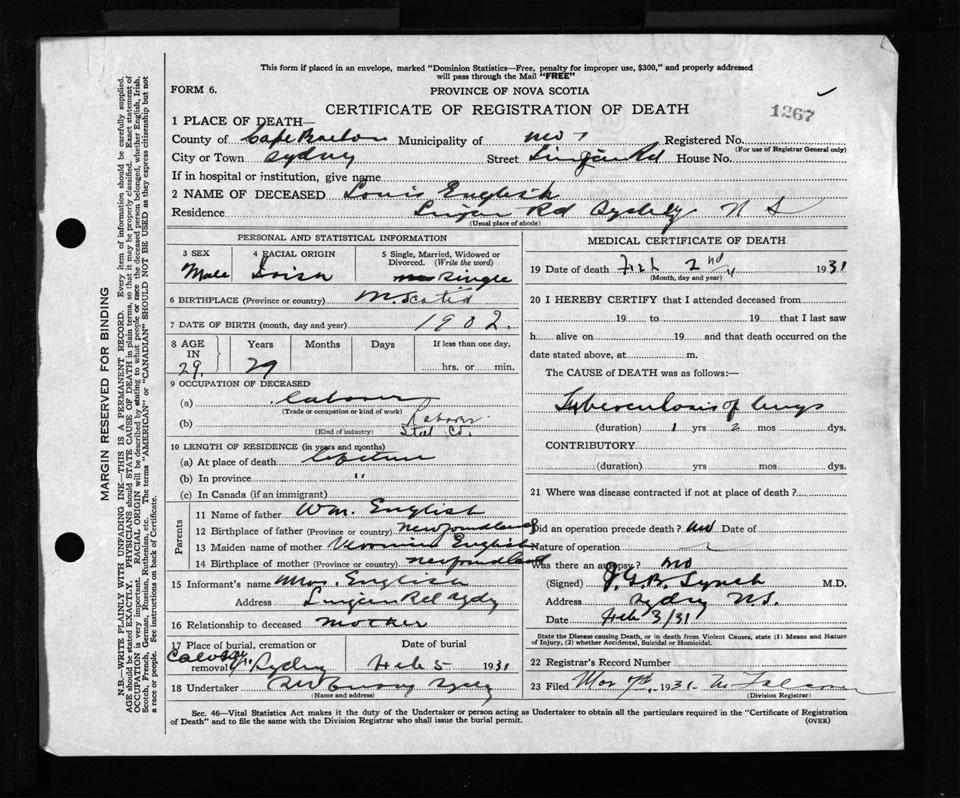 This form if placed in an envelope, marked "Dominion Statistics—Free, penalty for improper use, $300," and properly addressed
will pass through the Mail "FREE"
FORM 6.
PROVINCE OF NOVA SCOTIA
CERTIFICATE OF REGISTRATION OF DEATH
1267
1 PLACE OF DEATH—
County of Cape Breton Municipality of Registered No.
(For use of Registrar General only)
City or Town Sydney Street Lingan Rd House No.
If in hospital or institution, give name
2 NAME OF DECEASED Louis English
Residence Lingan Rd Sydney N S
(Usual place of abode)
PERSONAL AND STATISTICAL INFORMATION
3 SEX 4 RACIAL ORIGIN 5 Single, Married, Widowed or
Divorced. (Write the word)
Male Single
6 BIRTHPLACE (Province or country) N. Scotia
7 DATE OF BIRTH (month, day and year) 1902.
8 AGE IN Years Months Days If less than one day.
29. 29 hrs. or min.
9 OCCUPATION OF DECEASED
(a) Labourer
(Trade or occupation or kind of work)
(b) Steel Co.
(Kind of industry)
10 LENGTH OF RESIDENCE (in years and months)
(a) At place of death lifetime
(b) In province "
(c) In Canada (if an immigrant)
Parents
11 Name of father Wm. English
12 Birthplace of father (Province or country) Newfoundland
13 Maiden name of mother Veronica English
14 Birthplace of mother (Province or country) Newfoundland
15 Informant's name Mrs. English
Address Lingan Rd Sydy
16 Relationship to deceased Mother
17 Place of burial, cremation or Date of burial
removal Calvary Sydney Feb 5 1931
18 Undertaker Sydney
(Name and address)
MEDICAL CERTIFICATE OF DEATH
19 Date of death Feb 2nd 1931
(Month, day and year)
20 I HEREBY CERTIFY that I attended deceased from
19 to 19 that I last saw
h alive on 19 and that death occurred on the
date stated above, at m.
The CAUSE of DEATH was as follows:—
Tuberculosis of lungs
(duration) 1 yrs 2 mos dys.
CONTRIBUTORY
(duration) yrs mos dys.
21 Where was disease contracted if not at place of death?
Did an operation precede death? no Date of
Nature of operation
Was there an autopsy? no
(Signed) J. G. B. Lynch M.D.
Address Sydney N.S.
Date Feb 3/31
State the Disease causing Death, or in death from Violent Causes, state (1) Means and Nature
of Injury, (2) whether Accidental, Suicidal or Homicidal.
22 Registrar's Record Number
23 Filed Mar 7th, 1931.
(Division Registrar)
Sec. 46—Vital Statistics Act makes it the duty of the Undertaker or person acting as Undertaker to obtain all the particulars required in the "Certificate of Registration
of Death" and to file the same with the Division Registrar who shall issue the burial permit.
(OVER)
MARGIN RESERVED FOR BINDING
N.B.—WRITE PLAINLY WITH UNFADING INK—THIS IS A PERMANENT RECORD. Every item of information should be carefully supplied.
AGE should be stated EXACTLY. PHYSICIANS should STATE CAUSE OF DEATH in plain terms, so that it may be properly classified. Exact statement of
OCCUPATION is very important. RACIAL ORIGIN will be described by stating to what people or race the deceased person belonged, whether English, Irish,
Scotch, French, German, Russian, Ruthenian, etc. The terms "AMERICAN" or "CANADIAN" SHOULD NOT BE USED as they express citizenship but not
a race or people. See instructions on back of Certificate.